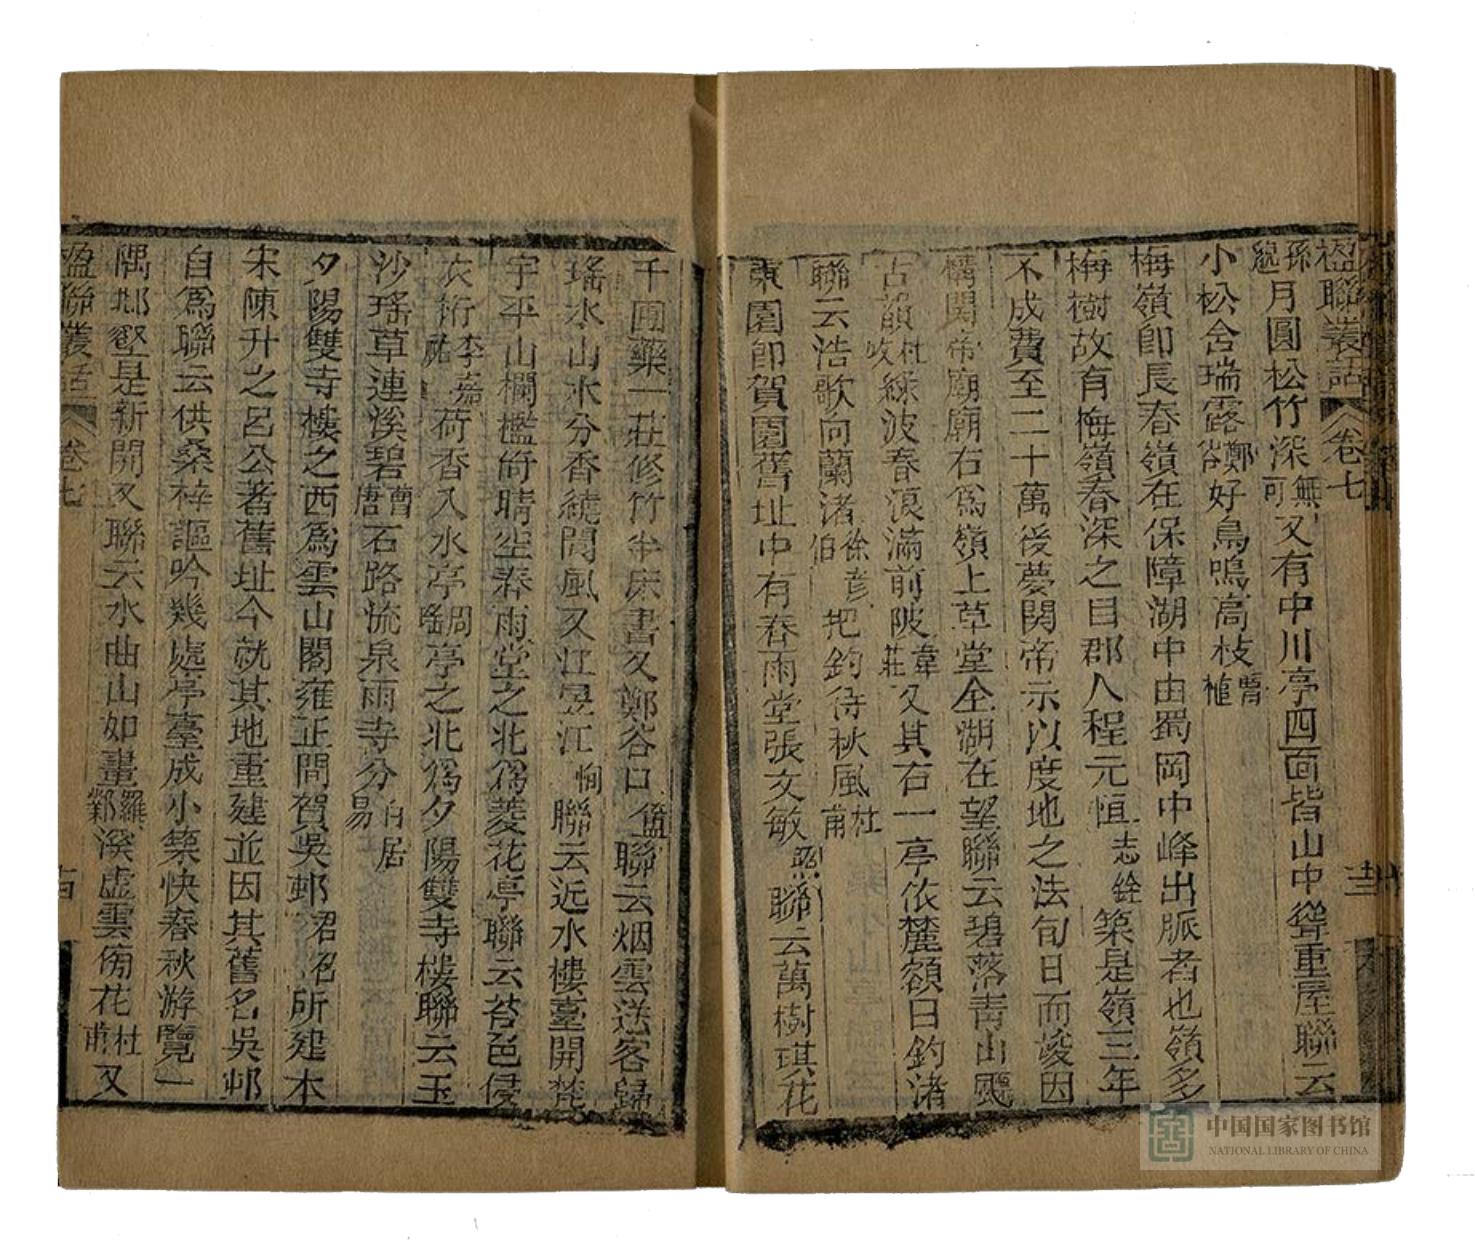 楹聯叢話 卷七 十三
孫逖月圓松竹深無可又有中川亭四面皆山中聳重屋聯云
小松含瑞露鄭谷好鳥鳴高枝曹植
梅嶺卽長春嶺在保障湖中由蜀岡中峰出脈者也嶺多
梅樹故有梅嶺春深之目郡人程元恒志銓築是嶺三年
不成費至二十萬後夢関帝示以度地之法旬日而竣因
構関帝廟廟右爲嶺上草堂全湖在望聯云碧落青山飄
古韻杜牧綠波春浪滿前陂韋莊又其右一亭依麓額曰釣渚
聯云浩歌向蘭渚徐彥伯把釣待秋風杜甫
東園卽賀園舊址中有春雨堂張文敏照聯云萬樹琪花
千圃藥一莊修竹半床書又鄭谷口簠聯云烟雲送客歸
瑤水山水分香繞閬風又江昱江恂聯云近水樓臺開梵
宇平山欄檻倚晴空春雨堂之北爲菱花亭聯云苔色侵
衣桁李嘉祐荷香入水亭周瑀亭之北爲夕陽雙寺樓聯云玉
沙瑤草連溪碧曹唐石路流泉兩寺分白居易
夕陽雙寺樓之西爲雲山閣雍正間賀吳邨君召所建本
宋陳升之呂公著舊址今就其地重建並因其舊名吳邨
自爲聯云供桑梓謳吟幾處亭臺成小築快春秋游覽一
隅邱壑是新開又聯云水曲山如畫羅鄴溪虛雲傍花杜甫又
楹聯叢話 卷七 十四
中国国家图书馆
NATIONAL LIBRARY OF CHINA